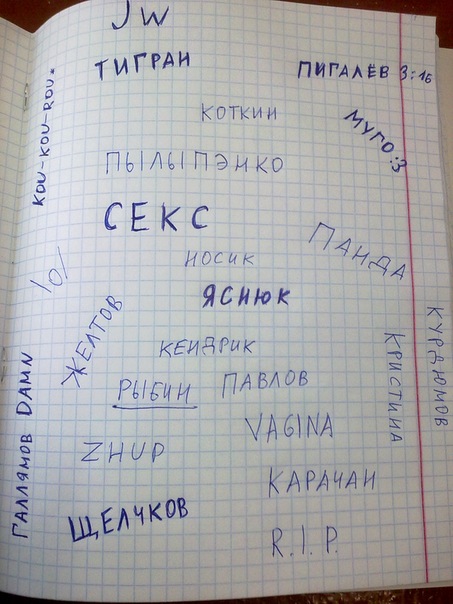 JW
ТИГРАН
ПИГАЛЁВ 3:16
KOU-KOU-ROU.
КОТКИН
МУГО:3
ПЫЛЫПЭНКО
СЕКС
ПАНДА
НОСИК
\o/
ЯСНЮК
ЖЕЛТОВ
КЕНДРИК
КРИСТИНА
КУРДЮМОВ
РЫБИН
ПАВЛОВ
VAGINA
ZHUP
ГАЛЛЯМОВ DAMN
КАРАЧАН
ЩЕЛЧКОВ
R.I.P.